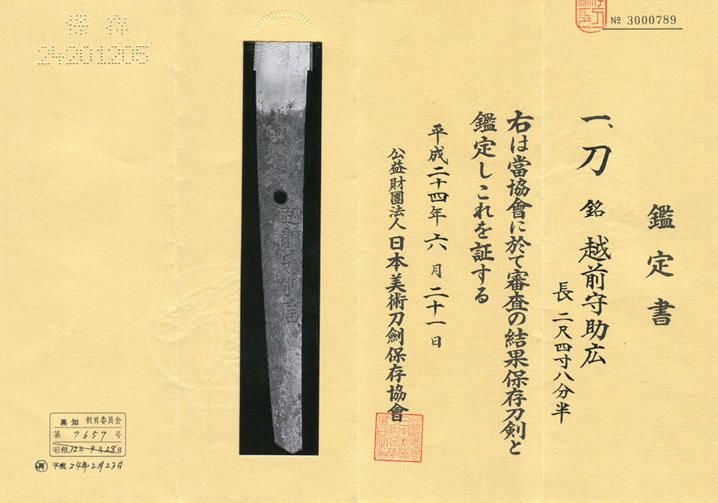 鑑定書
№ 3000789
一、刀 銘 越前守助広
長 二尺四寸八分半
右は當協會に於て審査の結果保存刀剣と
鑑定しこれを証する
平成二十四年六月二十一日
公益財團法人 日本美術刀劍保存協會
越前守助廣
保存
24201205
高知 教育委員会
第 7657 号
昭和32年9月28日
平成24年2月23日